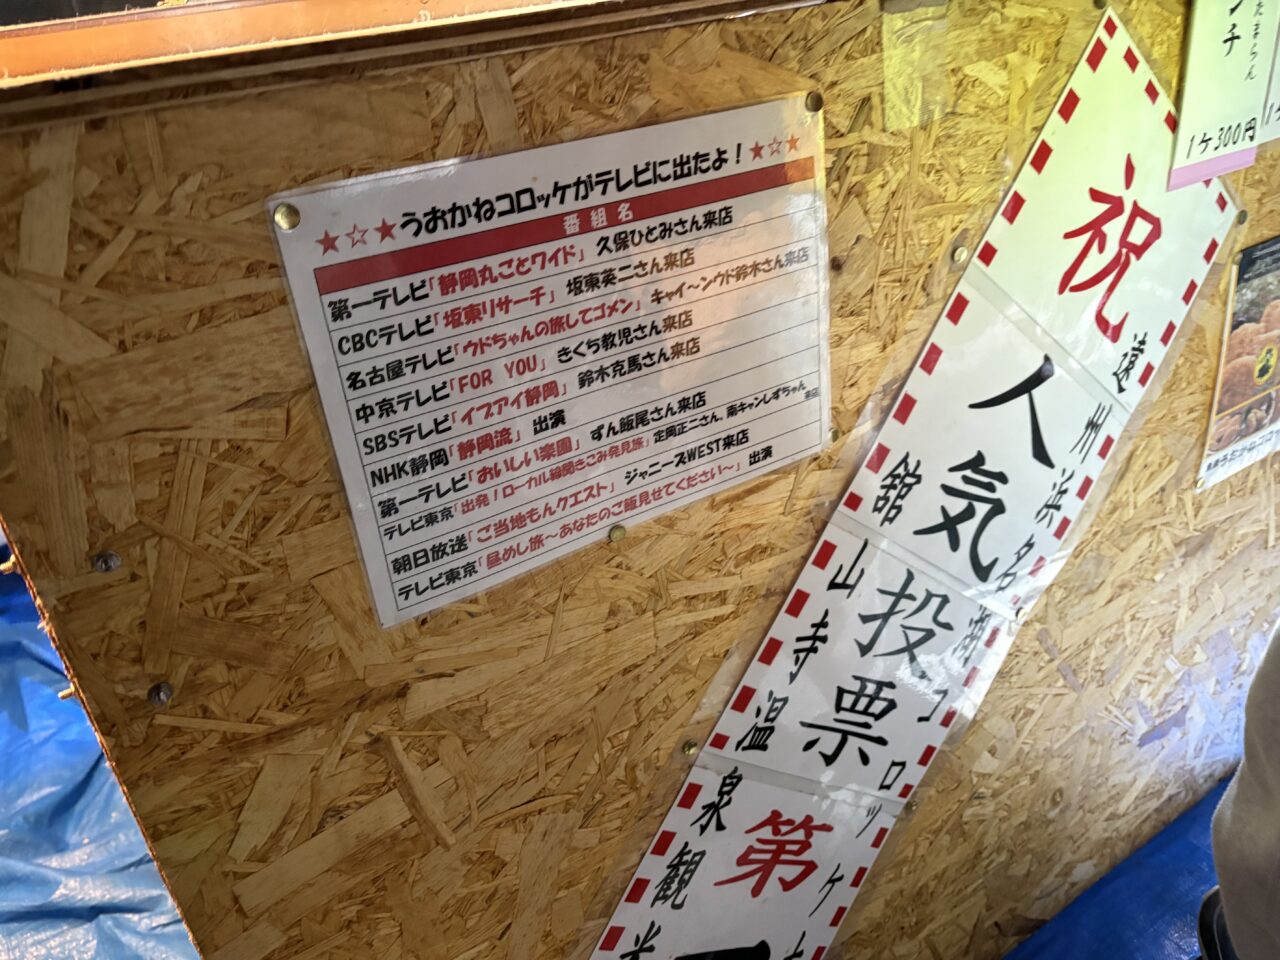 ★☆★うおかねコロッケがテレビに出たよ！★☆★
番組名
第一テレビ「静岡丸ごとワイド」 久保ひとみさん来店
CBCテレビ「坂東リサーチ」 坂東英二さん来店
名古屋テレビ「ウドちゃんの旅してゴメン」 キャイ〜ンウド鈴木さん来店
中京テレビ「FOR YOU」 きくち教児さん来店
SBSテレビ「イブアイ静岡」 鈴木克馬さん来店
NHK静岡「静岡流」 出演
第一テレビ「おいしい楽園」 ずん飯尾さん来店
テレビ東京「出発！ローカル線聞きこみ発見旅」 定岡正二さん、南キャンしずちゃん来店
朝日放送「ご当地もんクエスト」 ジャニーズWEST来店
テレビ東京「昼めし旅〜あなたのご飯見せてください〜」 出演
祝
遠州浜名湖コロッケ
人気投票
第
舘山寺温泉観
たまらん
1ケ300円